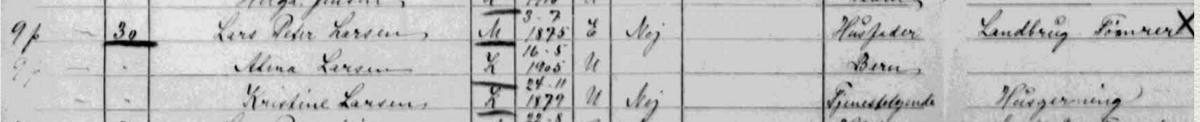 9 p - 30 Lars Peter Larsen M 3-7 1875 E Nej Husfader Landbrug Tømrer X
9 - - Alma Larsen K 16-5 1905 U Barn
- - Kristine Larsen K 24-11 1879 U Nej Tjenestetyende Husgerning
22-8